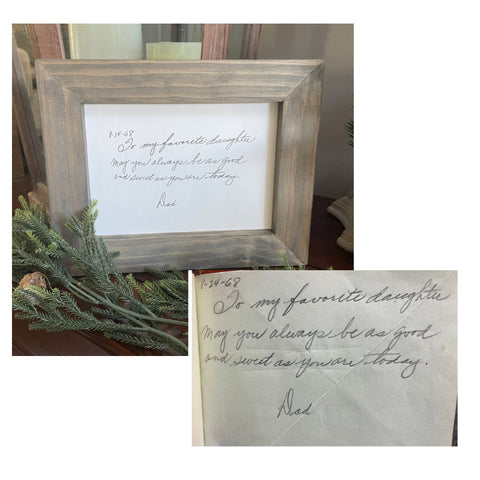 1-24-68
To my favorite daughter
may you always be as good
and sweet as you are today.
Dad
1-24-68
To my favorite daughter
may you always be as good
and sweet as you are today.
Dad